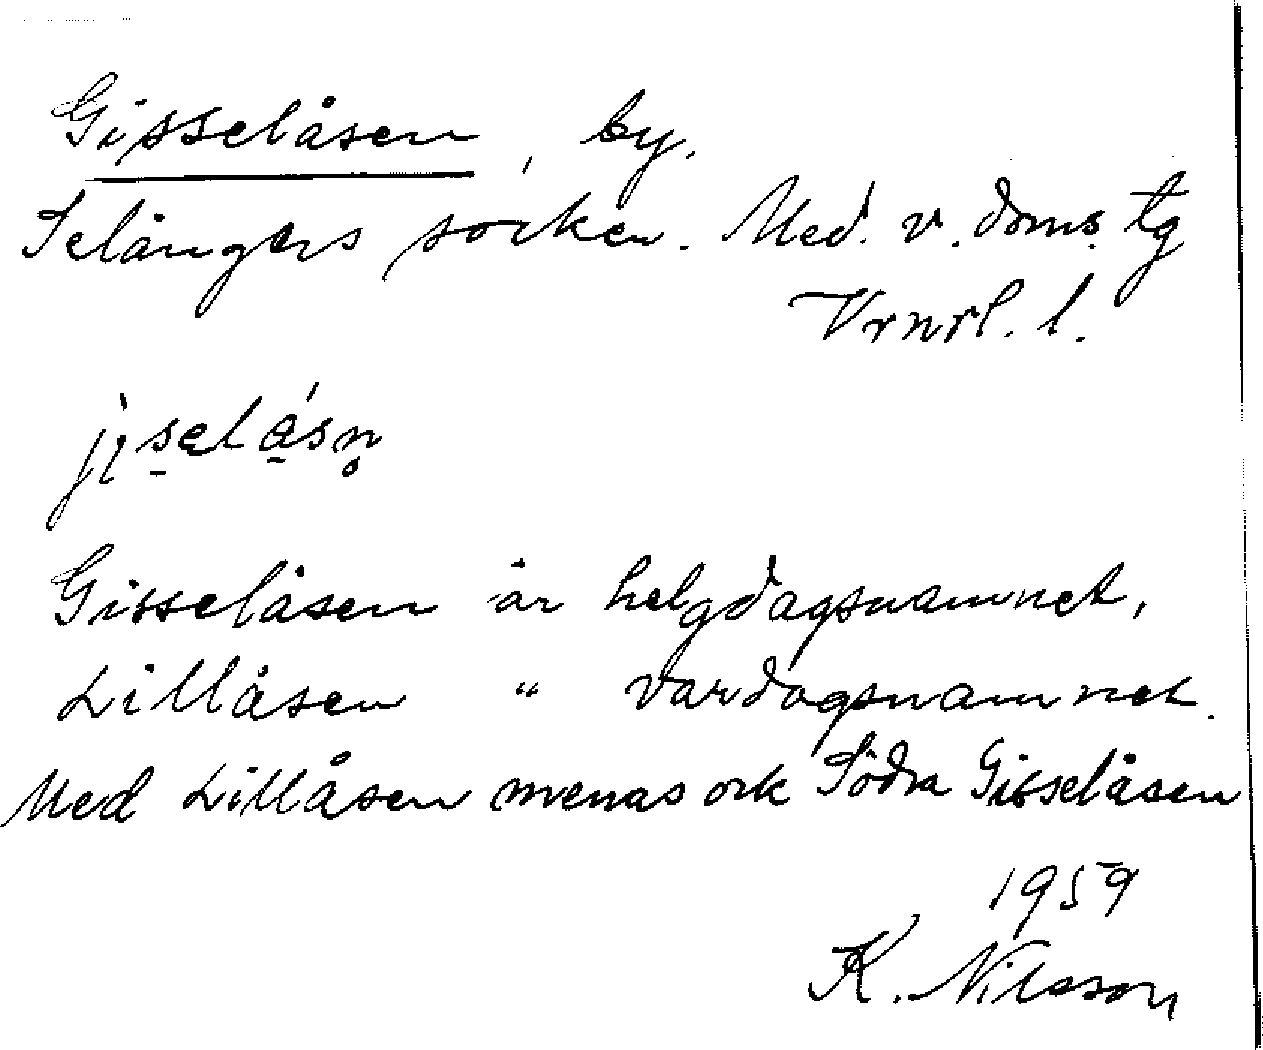 Gisselåsen, by.
Selångers socken. Med. v. doms. tg
Vrnrl. l.
jìselásn̥
Gisselåsen är helgdagsnamnet,
Lillåsen " vardagsnamnet.
Med Lillåsen menas ock Södra Gisselåsen
1959
K. Nilsson